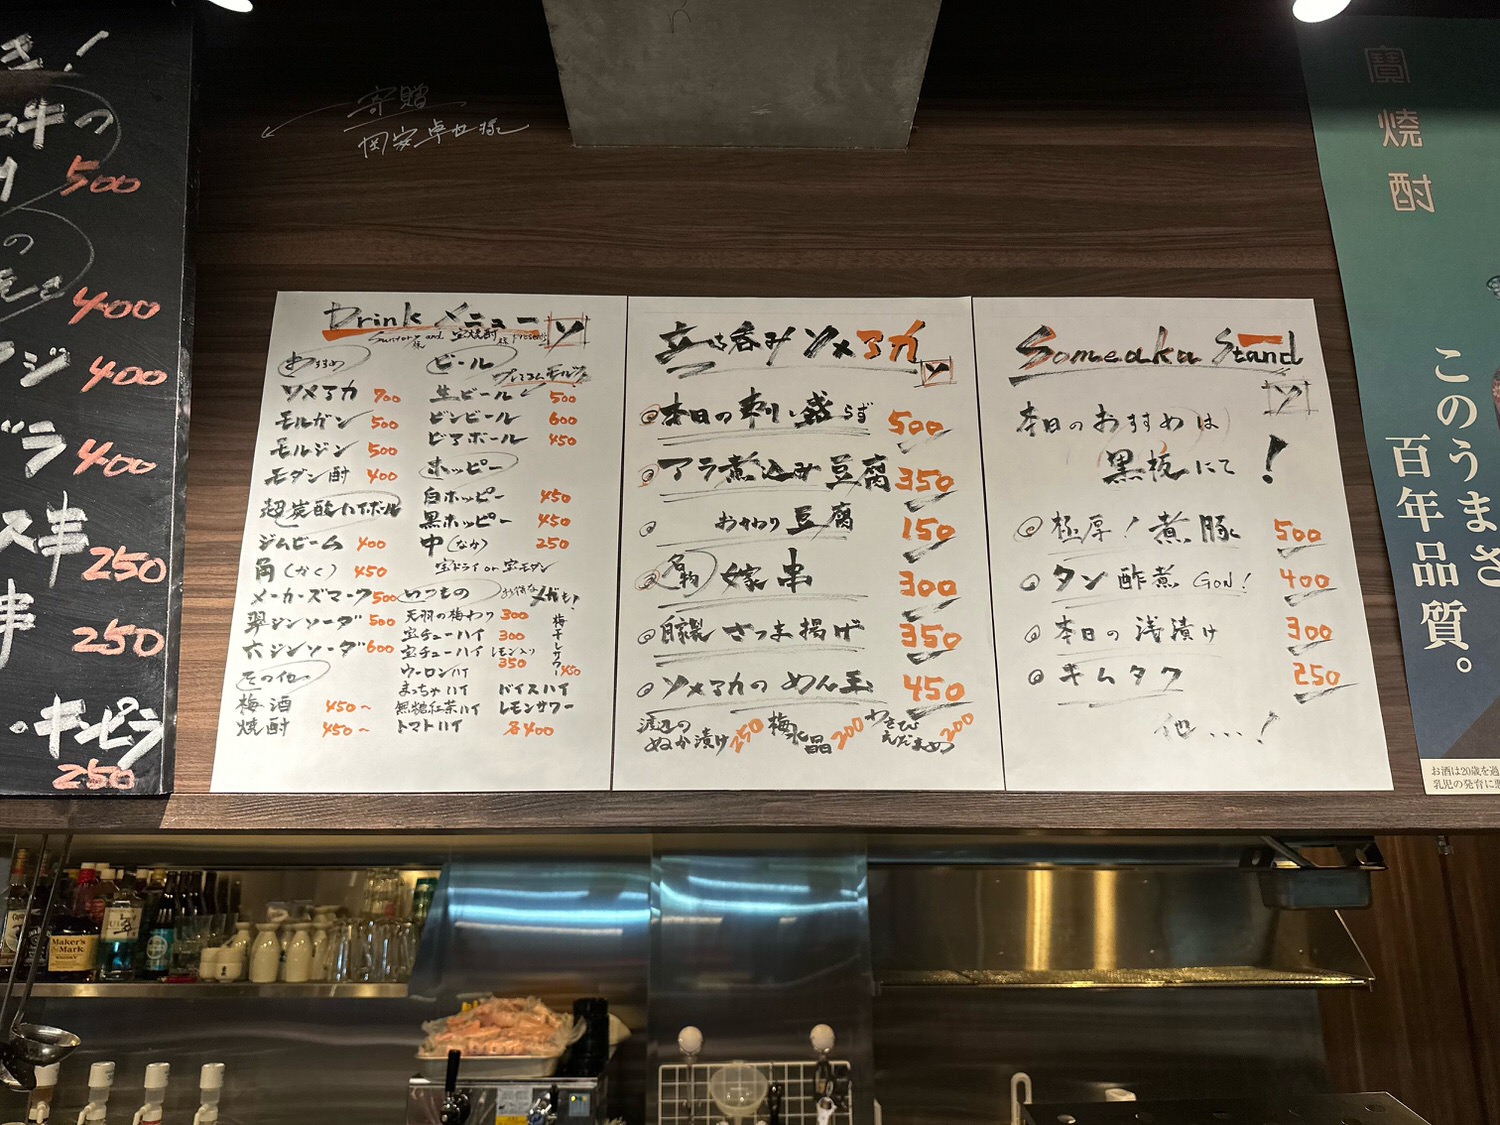 き!
牛の
500
の
400
ジ
400
ラ
400
ス串
250
串
250
キンピラ
250
寄贈
岡安卓也様
Drink メニュー
Suntory様 and 宝焼酎様 presents
ソ
おすすめ
ソメアカ 700
モルガン 500
モルジン 500
モダン酎 400
超炭酸ハイボール
ジムビーム 400
角(かく) 450
メーカーズマーク 500
翠ジンソーダ 500
六ジンソーダ 600
そのイロー
梅酒 450~
焼酎 450~
ビール
プレミアムモルツ
生ビール 500
ビンビール 600
ビアボール 450
ホッピー
白ホッピー 450
黒ホッピー 450
中(なか) 250
宝ドライ or 宝モダン
いつもの
お得なメガも!
天羽の梅わり 300
宝チューハイ 300
宝チューハイ レモン入り 350
ウーロンハイ
まっちゃハイ
無糖紅茶ハイ
トマトハイ
ドイスハイ
レモンサワー
各400
梅干しサワー 450
立ち呑みソメアカ
ソ
本日の刺し盛らず 500
アラ煮込み豆腐 350
おかわり豆腐 150
名物 嫁串 300
自家製さつま揚げ 350
ソメアカのめん玉 450
渡辺のぬか漬け 250
梅水晶 200
わさびえだまめ 200
Someaka Stand
ソ
本日のおすすめは
黒板にて!
極厚!煮豚 500
タン酢煮 GON! 400
本日の浅漬け 300
キムタク 250
他...!
寶焼酎
このうまさ
百年品質。
お酒は20歳を過
乳児の発育に悪
Maker's
Mark